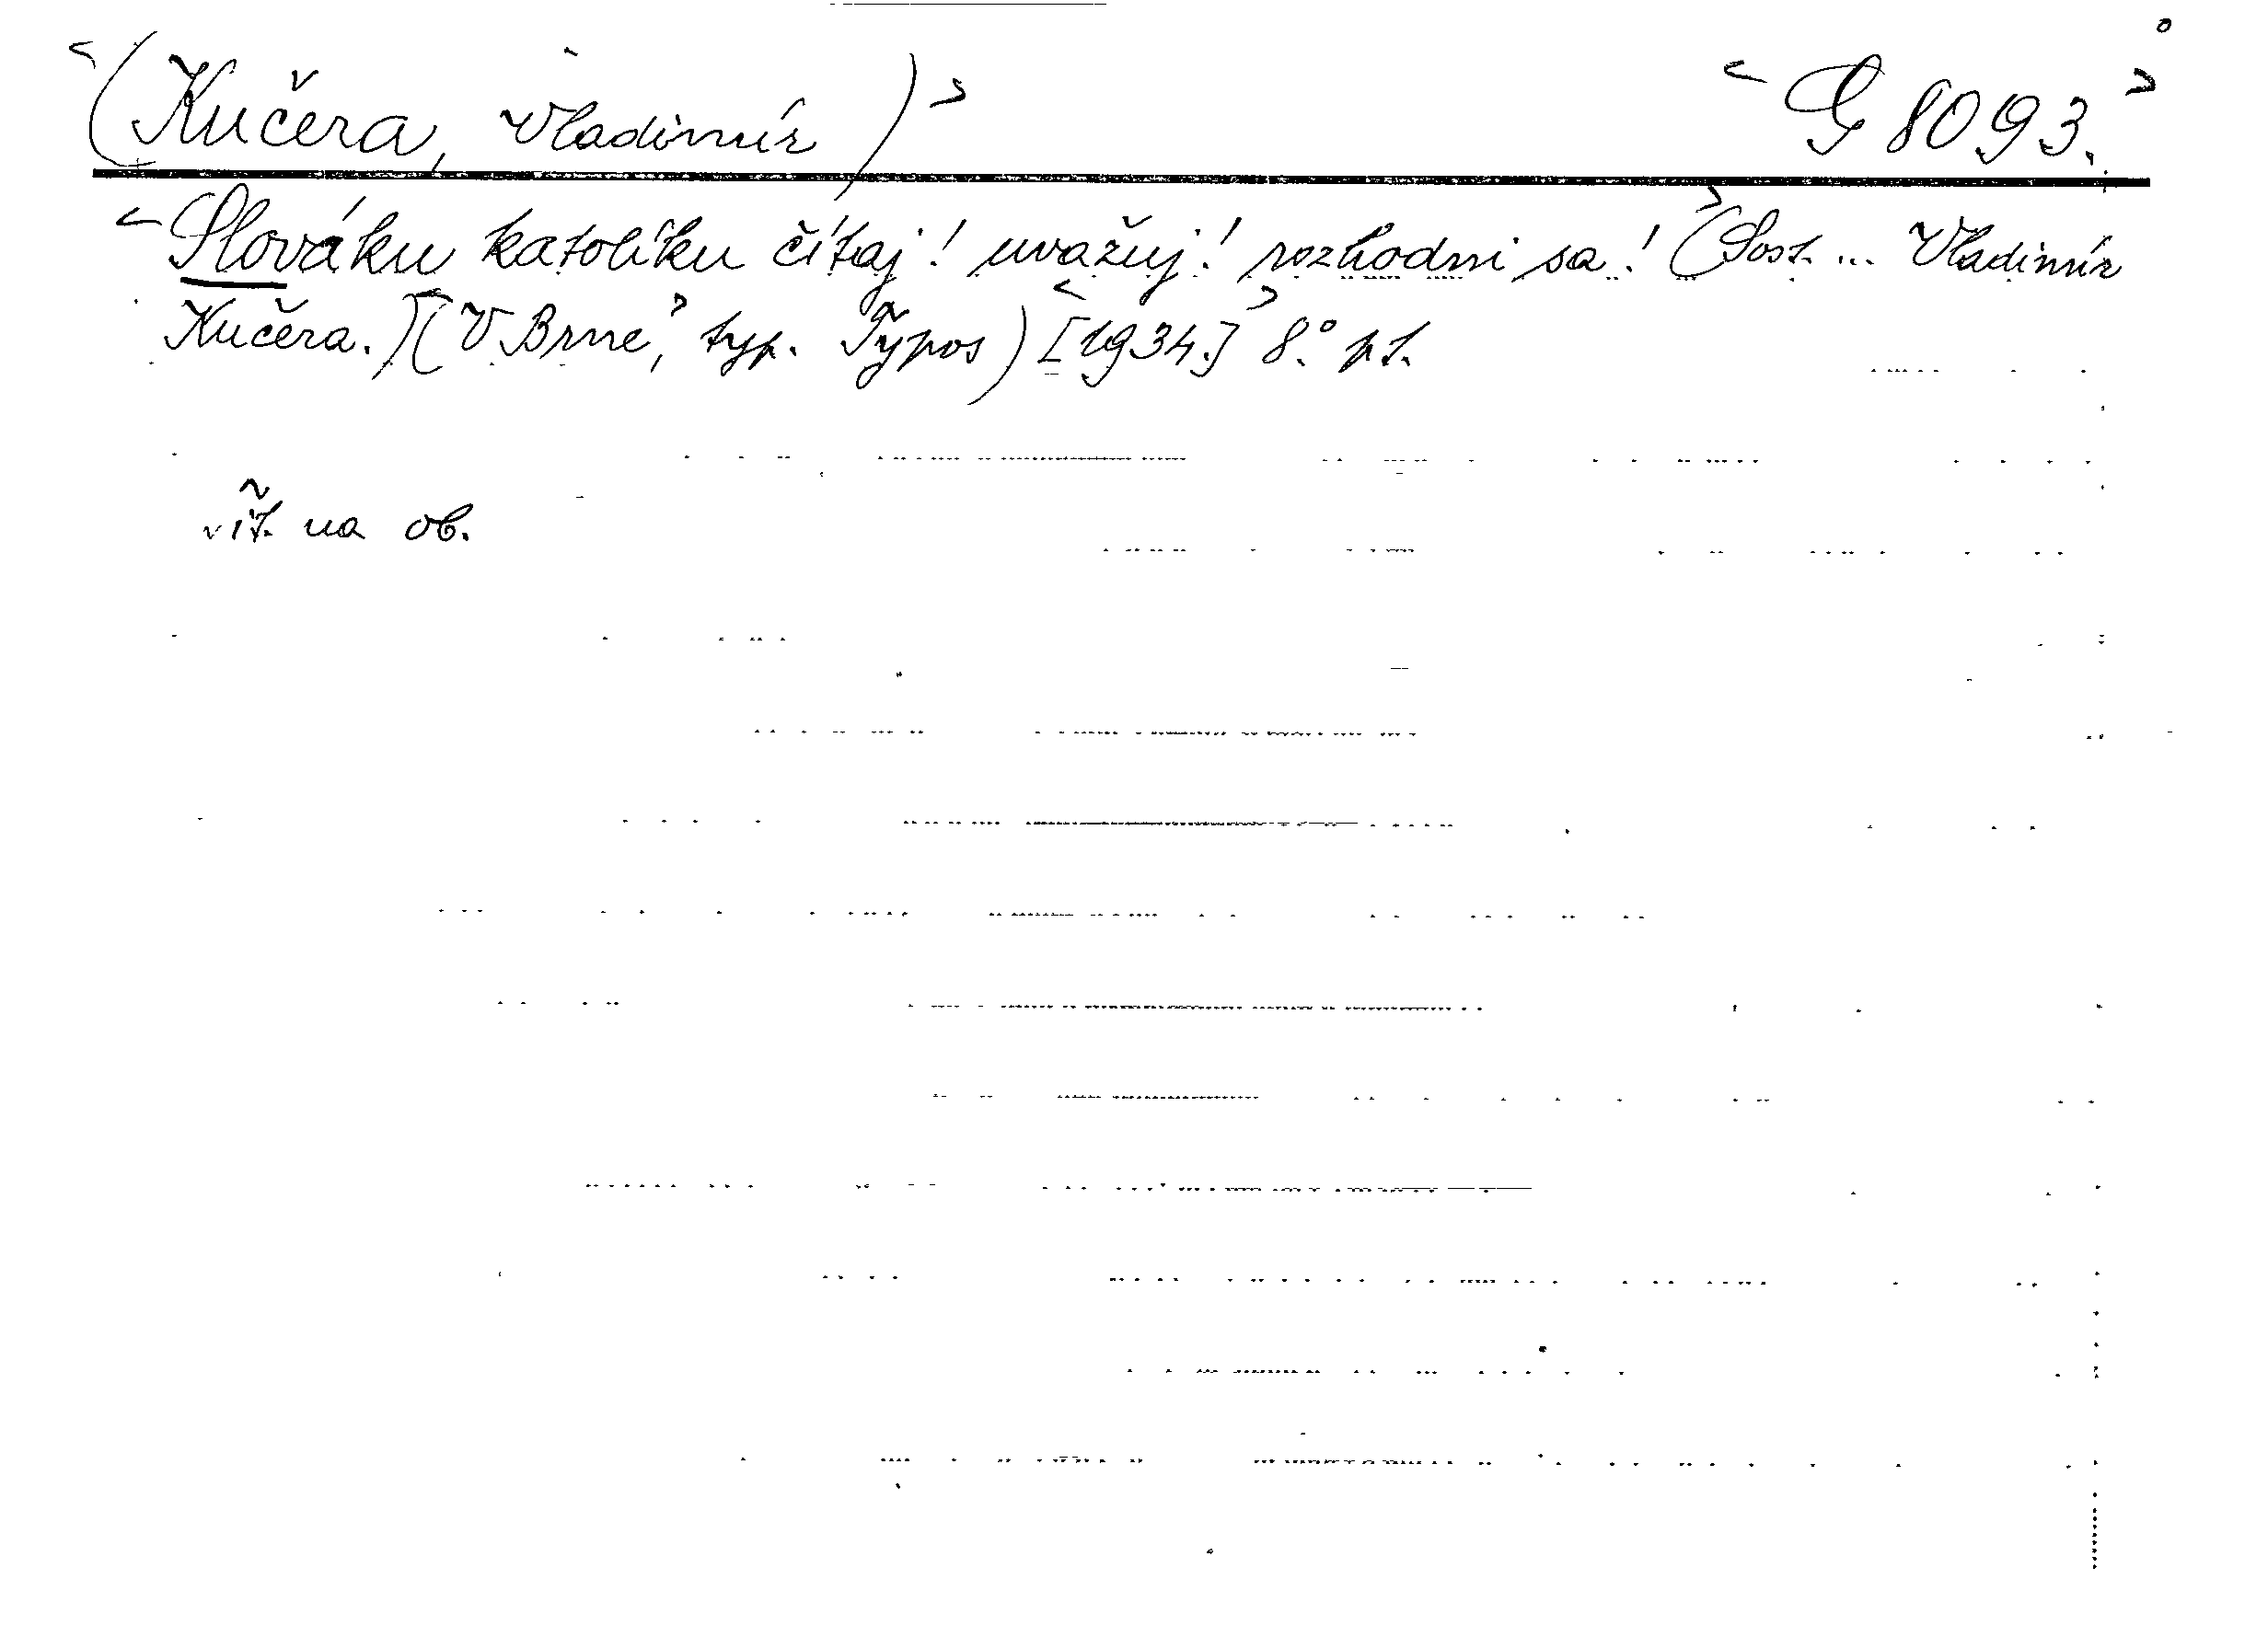 <(Kučera, Vladimír)> <G 8093.>
<Slováku katolíku čítaj! uvažuj! rozhodni sa!> (Sost. ... Vladimír
Kučera.) (V Brne>, typ. Typos) <[1934.]> 8.° p t.
na ob.